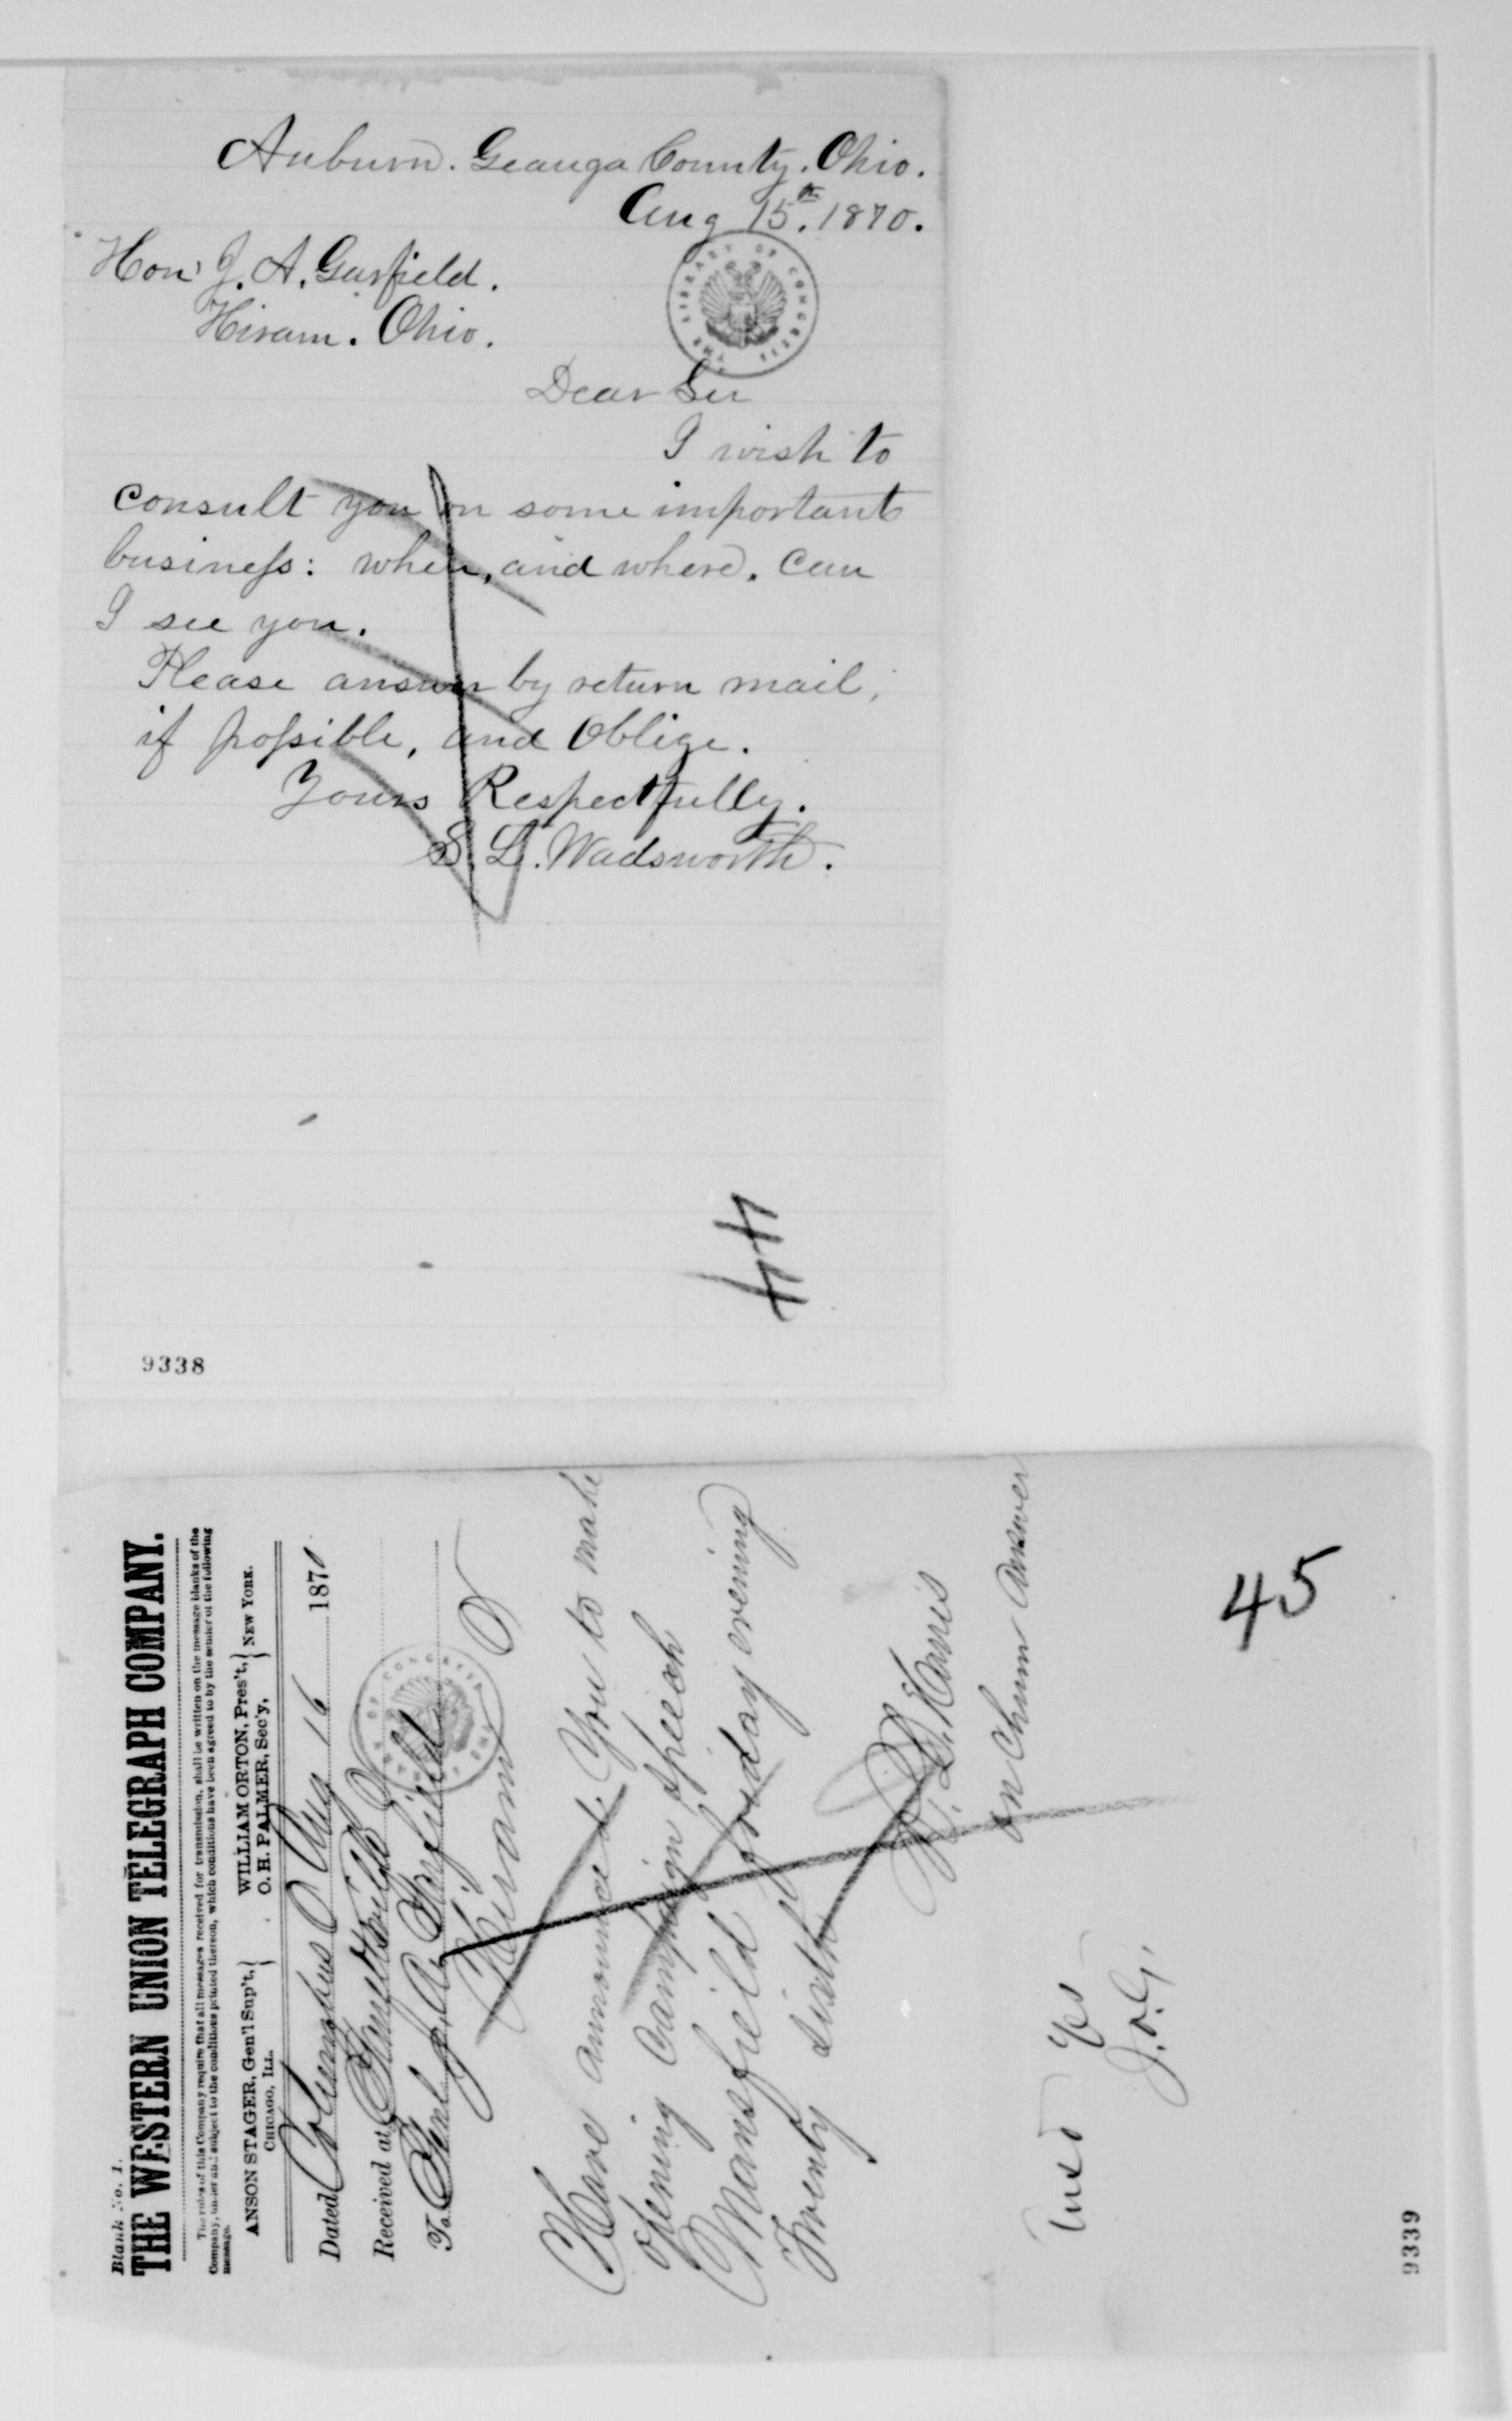 Auburn. Geauga County. Ohio.
Aug 15th. 1870.
Hon' J. A. Garfield.
Hiram. Ohio.
THE LIBRARY OF CONGRESS
Dear Sir
I wish to
consult you on some important
business: when, and where. can
I see you.
Please answer by return mail,
if possible, and oblige.
Yours Respectfully.
S. L. Wadsworth.
44
9338
Blank No. 1.
THE WESTERN UNION TELEGRAPH COMPANY.
The rules of this Company require that all messages received for transmission, shall be written on the message blanks of the
Company, under and subject to the conditions printed thereon, which conditions have been agreed to by the sender of the following
message.
ANSON STAGER, Gen'l Sup't,
CHICAGO, ILL.
WILLIAM ORTON, Pres't,
O. H. PALMER, Sec'y,
NEW YORK.
Dated Columbus O Aug 16 1870
Received at Garrettsville O
To Genl J. A. Garfield
THE LIBRARY OF CONGRESS
Hiram O
Have announced You to make
opening Campaign speech
Mansfield friday evening
Twenty sixth
Harris
Chrm answer
yes
J. A. G.
45
9339